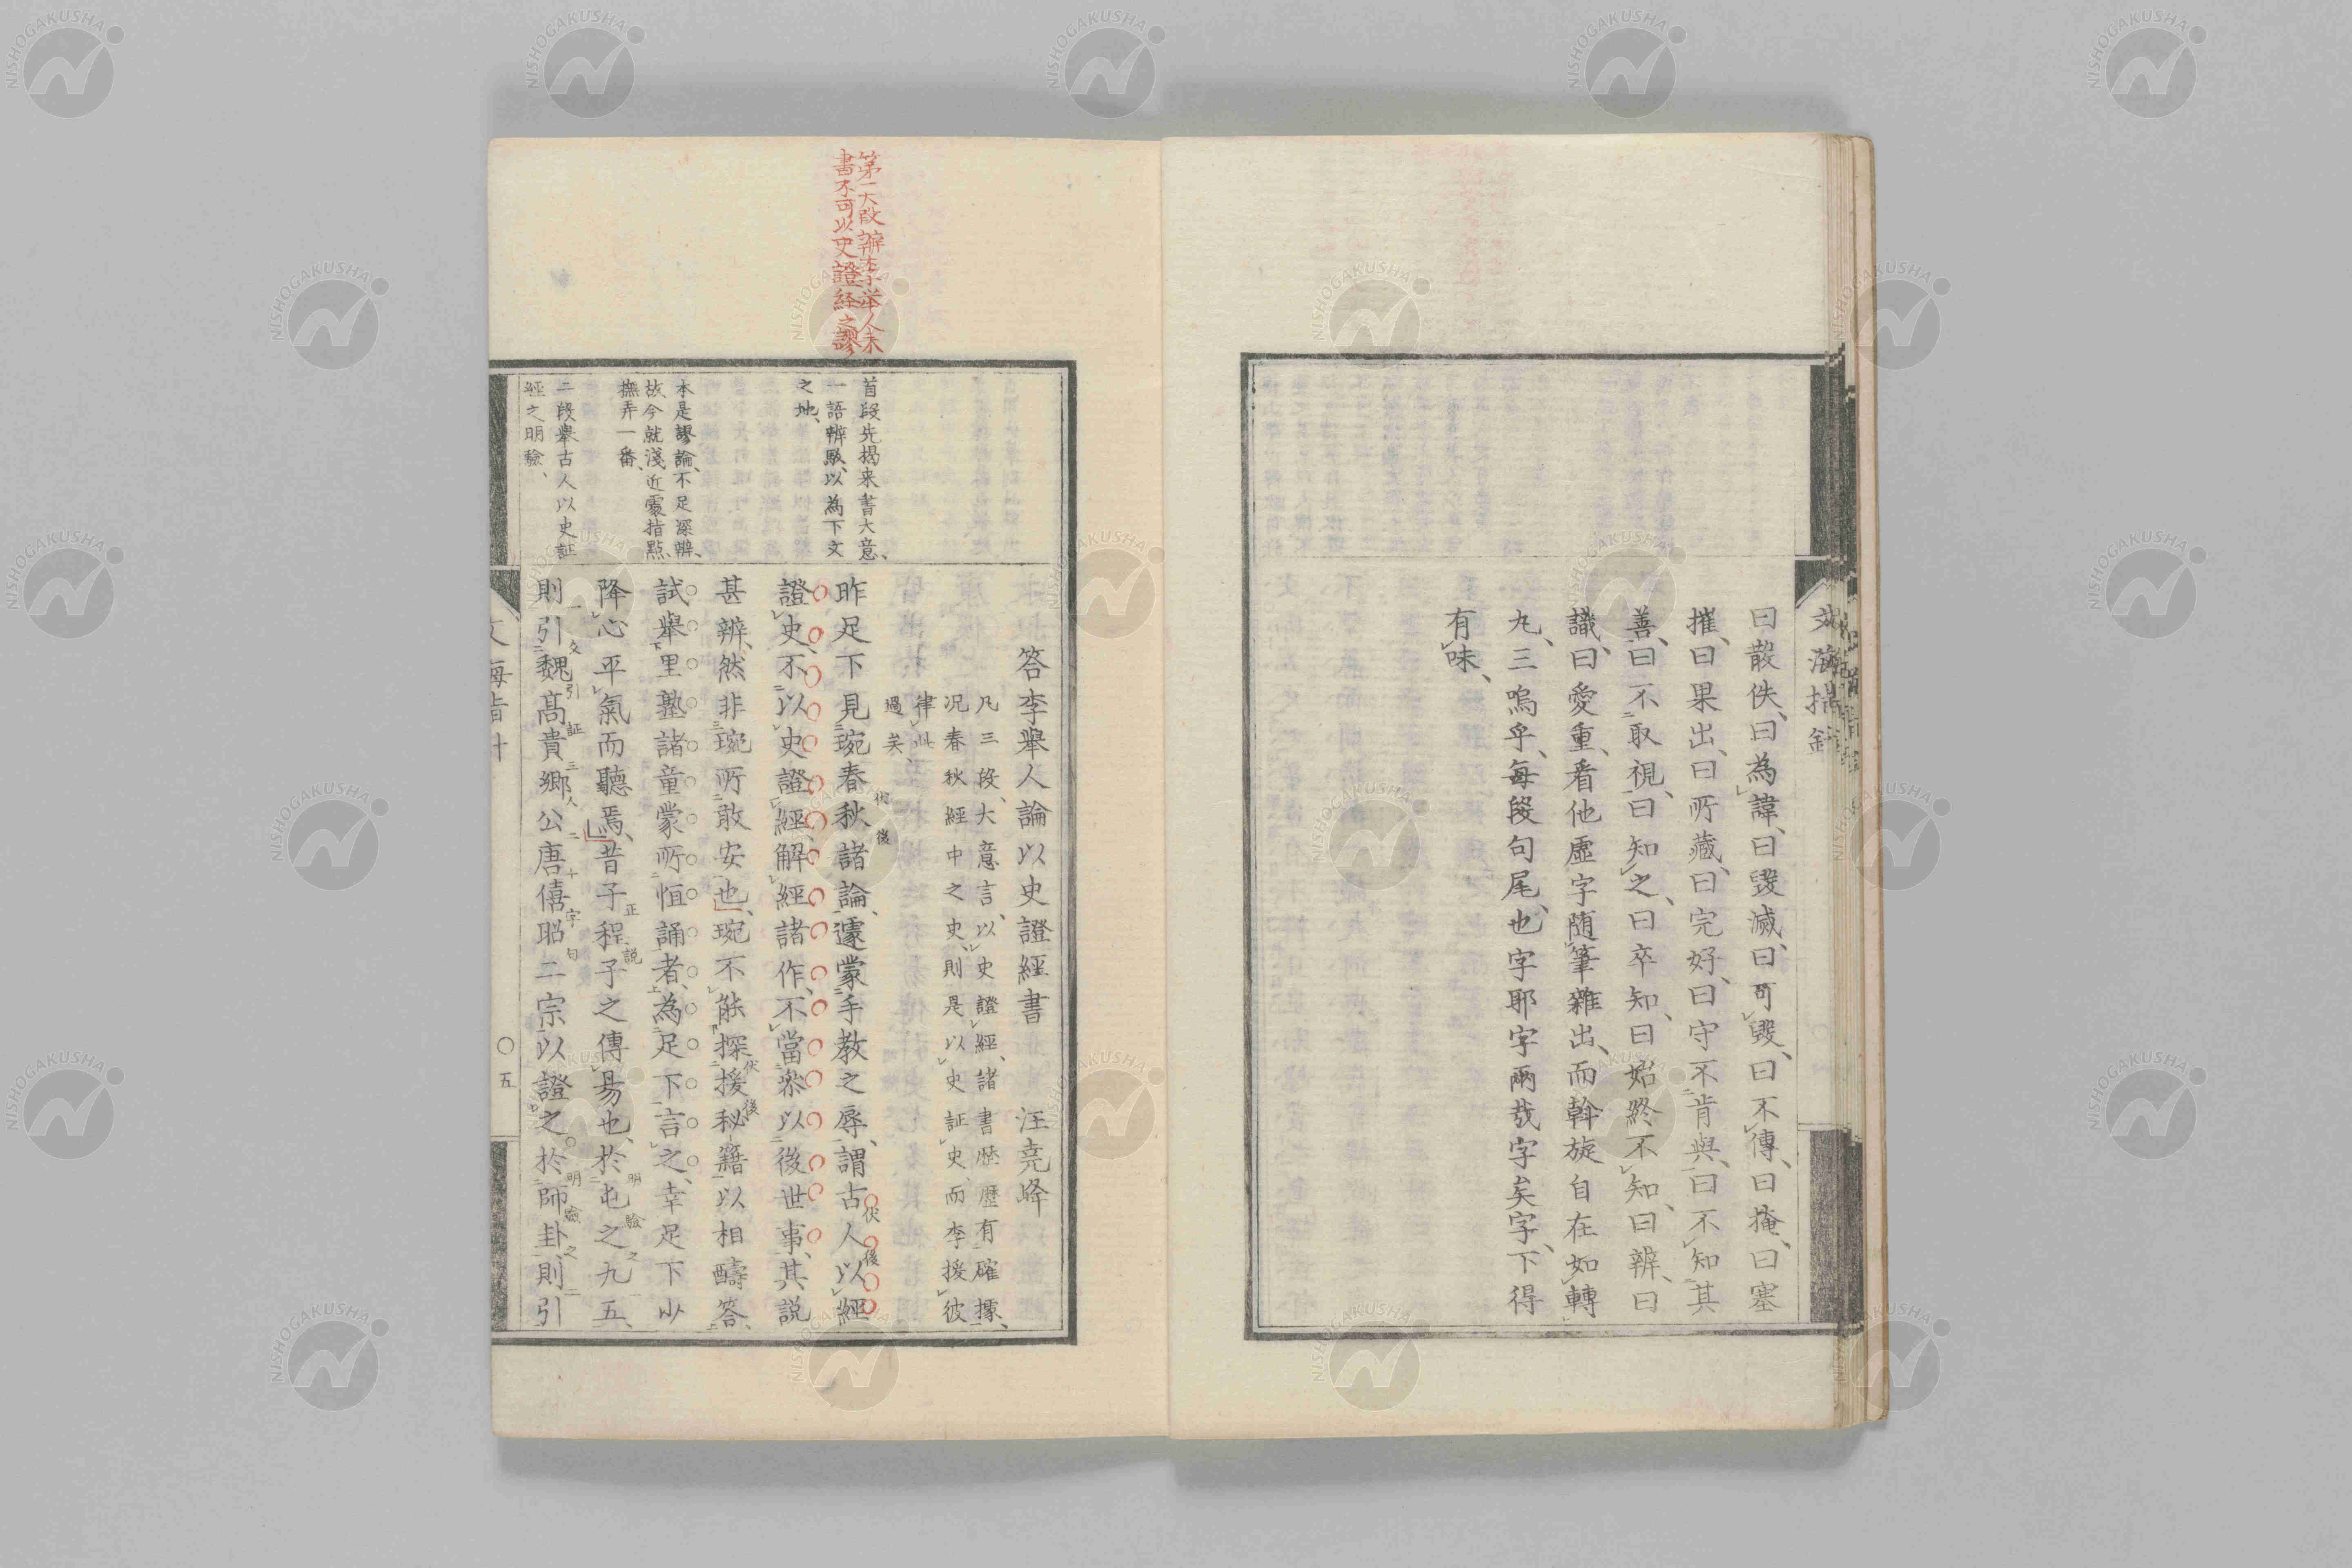 文海指針
曰散佚、曰為諱、曰毀滅、曰可毀、曰不傳、曰掩、曰塞
摧、曰果出、曰所藏、曰完好、曰守不肯與、曰不知其
善、曰不取視、曰知之、曰卒知、曰始終不知、曰辨、曰
識、曰愛重、看他虛字随筆雜出、而斡旋自在如轉
九、三嗚乎、每段句尾、也字耶字兩哉字矣字、下得
有味、
第一大段辨李擧人来
書不可以史證経之謬
首段先揭来書大意、
一語辨駁、以為下文
之地、
本是謬論、不足深辨、
故今就淺近處指點、
撫弄一番、
二段舉古人以史証
經之明驗、
答李舉人論以史證經書 汪堯峰
凡三段、大意言、以史證經、諸書歴歴有確據、
况春秋經中之史、則是以史証史、而李援彼
律此
過矣、
昨足下見琬春秋諸論、遽蒙手教之辱、謂古人以經
伏後
伏後
證史、不以史證經、解經諸作、不當參以後世事、其説
甚辨、然非琬所敢安也、琬不能探援秘籍以相疇答、
伏後
試舉里塾諸童蒙所恒誦者、為足下言之、幸足下少
降心平氣而聽焉、昔子程子之傳易也、於屯之九五、
正説
明驗之二
則引魏髙貴鄉公唐僖昭二宗以證之、於師卦、則引
一文引証三人二十字句
明驗之二
文海指針
○五
NISHOGAKUSHA